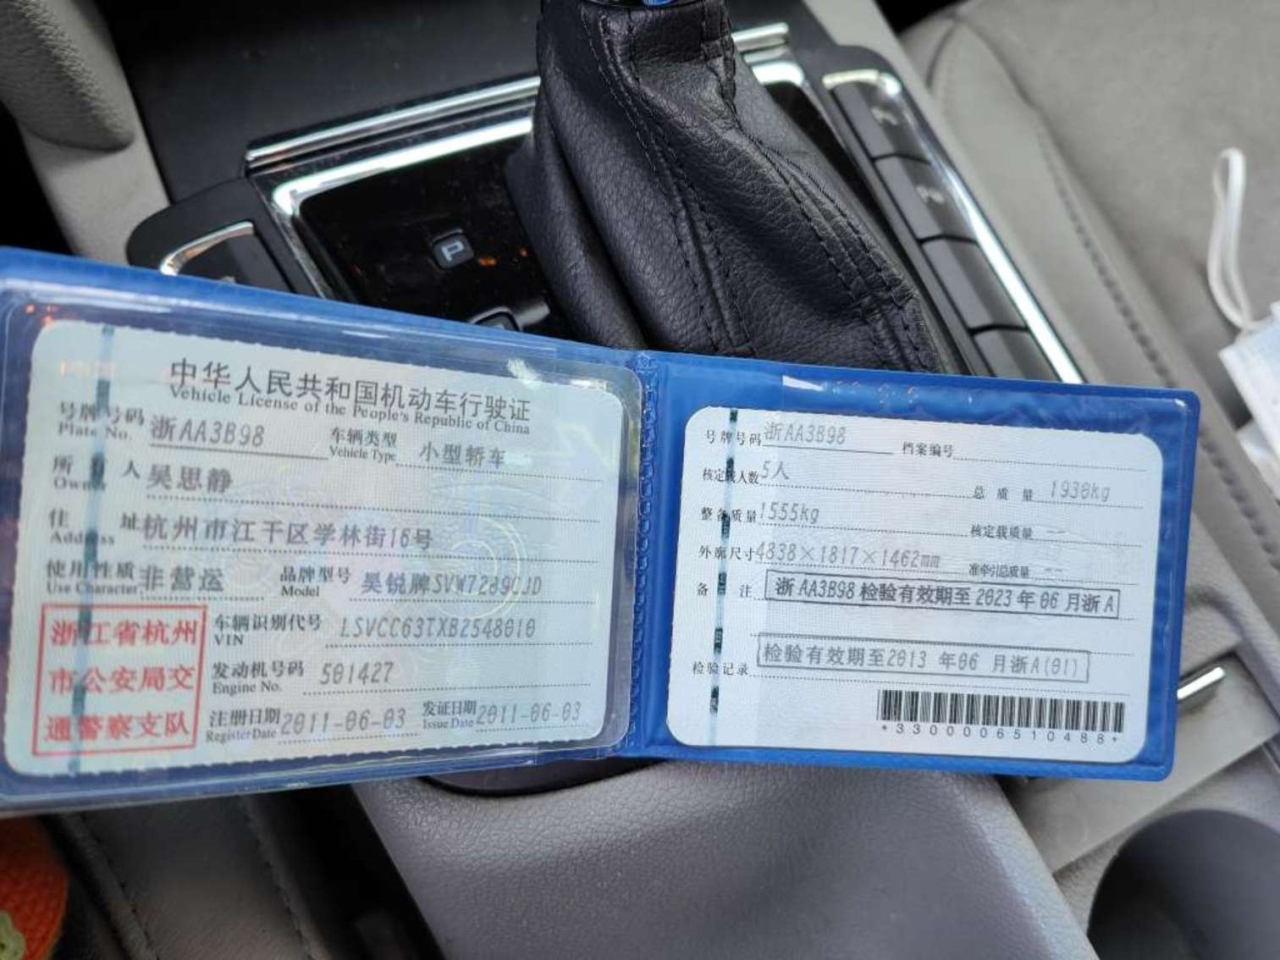 中华人民共和国机动车行驶证
Vehicle License of the People's Republic of China
号牌号码 浙AA3B98 车辆类型 小型轿车
Plate No. Vehicle Type
所有人 吴思静
Owner
住址 杭州市江干区学林街16号
Address
使用性质 非营运 品牌型号
Use Character Model
浙江省杭州
市公安局交
通警察支队
车辆识别代号 LSVCC63TXB2548010
VIN
发动机号码 501427
Engine No.
注册日期 2011-06-03 发证日期 2011-06-03
Register Date Issue Date
号牌号码 浙AA3B98 档案编号
核定载人数 5人 总质量 1930kg
整备质量 1555kg 核定载质量 --
外廓尺寸 4838×1817×1462mm 准牵引总质量 --
备注 浙AA3B98 检验有效期至 2023年06月浙A
检验记录 检验有效期至2013 年06 月浙A(01)
*3300006510488*
P